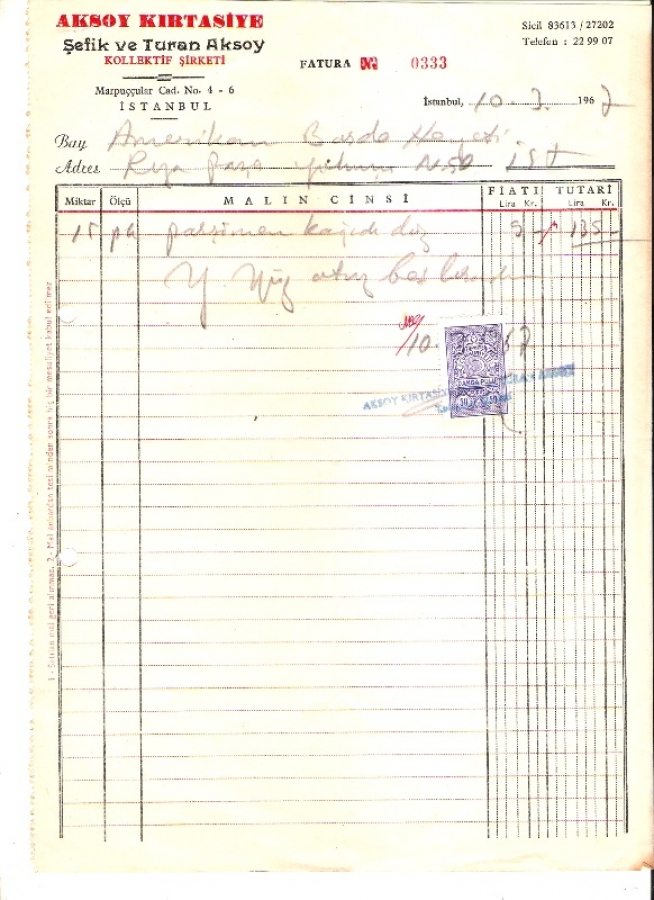 AKSOY KIRTASİYE
Şefik ve Turan Aksoy
KOLLEKTİF ŞİRKETİ
Marpuççular Cad. No. 4 - 6
İSTANBUL
FATURA No 0333
Sicil 83613 / 27202
Telefon : 22 99 07
İstanbul, 10 - 3 - 1967
Bay Amerikan Borda Heyeti
Adres Rıza paşa yokuşu No 50 İST
Miktar Ölçü MALIN CİNSİ FİATI Lira Kr. TUTARI Lira Kr.
15 parşimen kağıdı düz 9 - 135 -
Y. Yüz otuz beş liradır
10 67
AKSOY KIRTASİYE
DAMGA PULU
1 - Satılan mal geri alınmaz. 2 - Mal anbardan tesliminden sonra hiç bir mesuliyet kabul edilmez